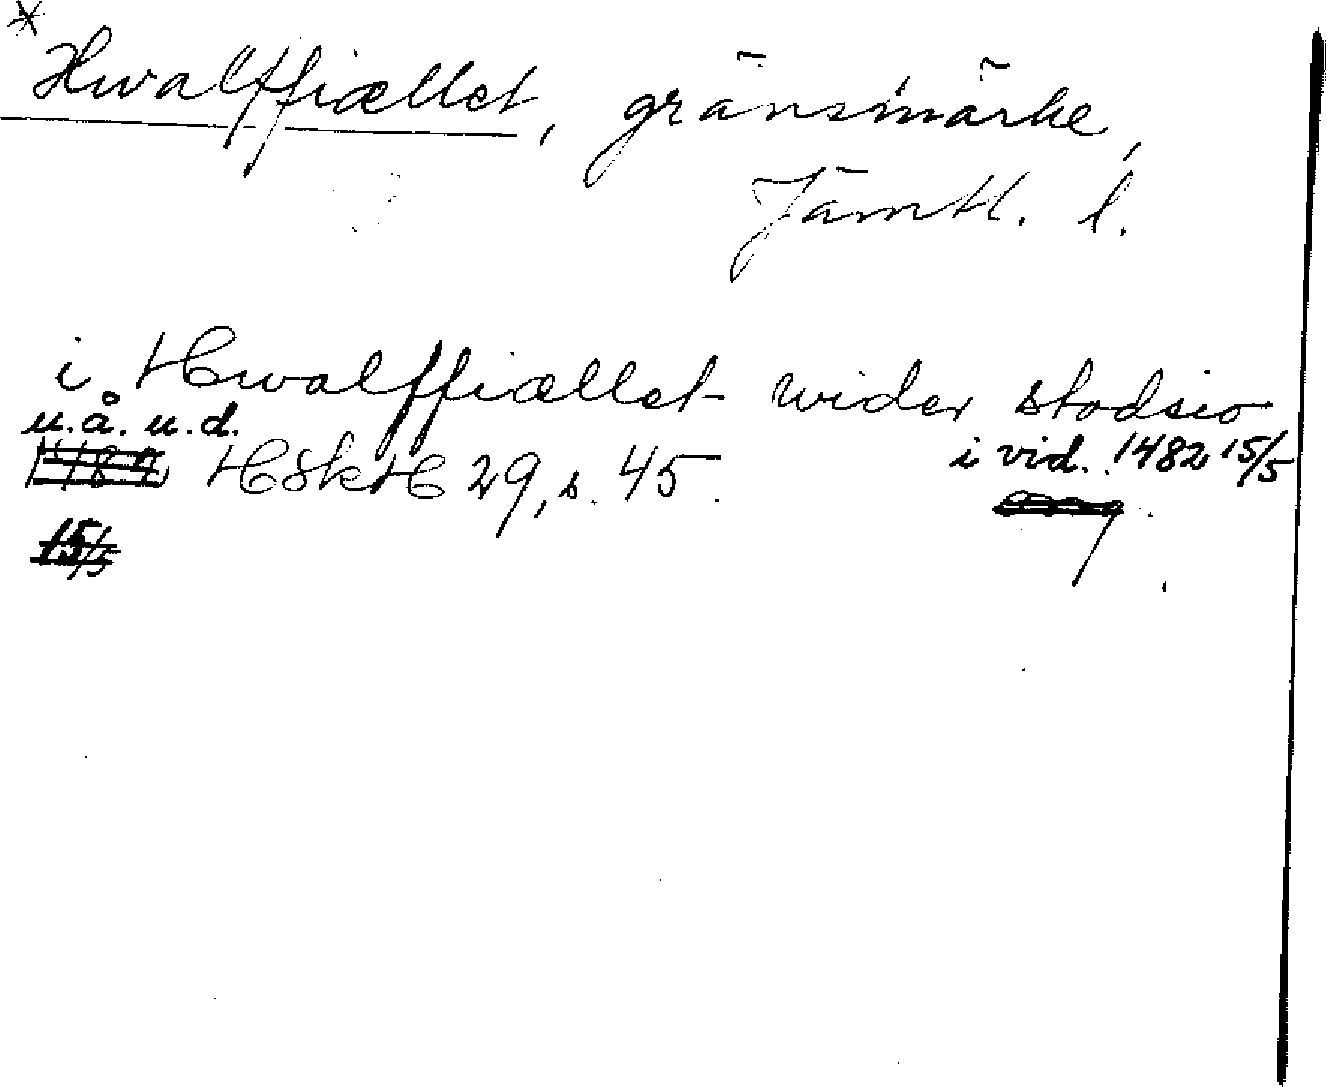 * Hwalffiællet, gränsmärke,
Jämtl. l.
i Hwalffiællet wider stodsio
u.å. u.d.
1482 HSkH 29, s. 45. i vid. 1482 15/5
15/5